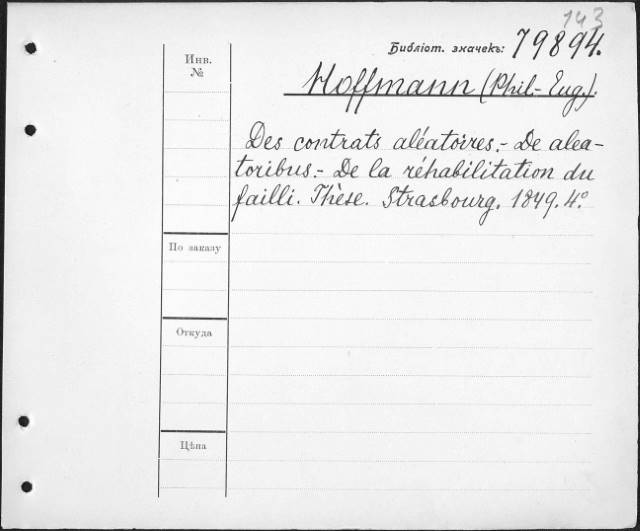 143
Библіот. значекъ: 79894.
Инв.
№
Hoffmann (Phil.-Eug.).
Des contrats aléatoires.- De alea-
toribus.- De la réhabilitation du
failli. Thèse. Strasbourg. 1849. 4°
По заказу
Откуда
Цѣна